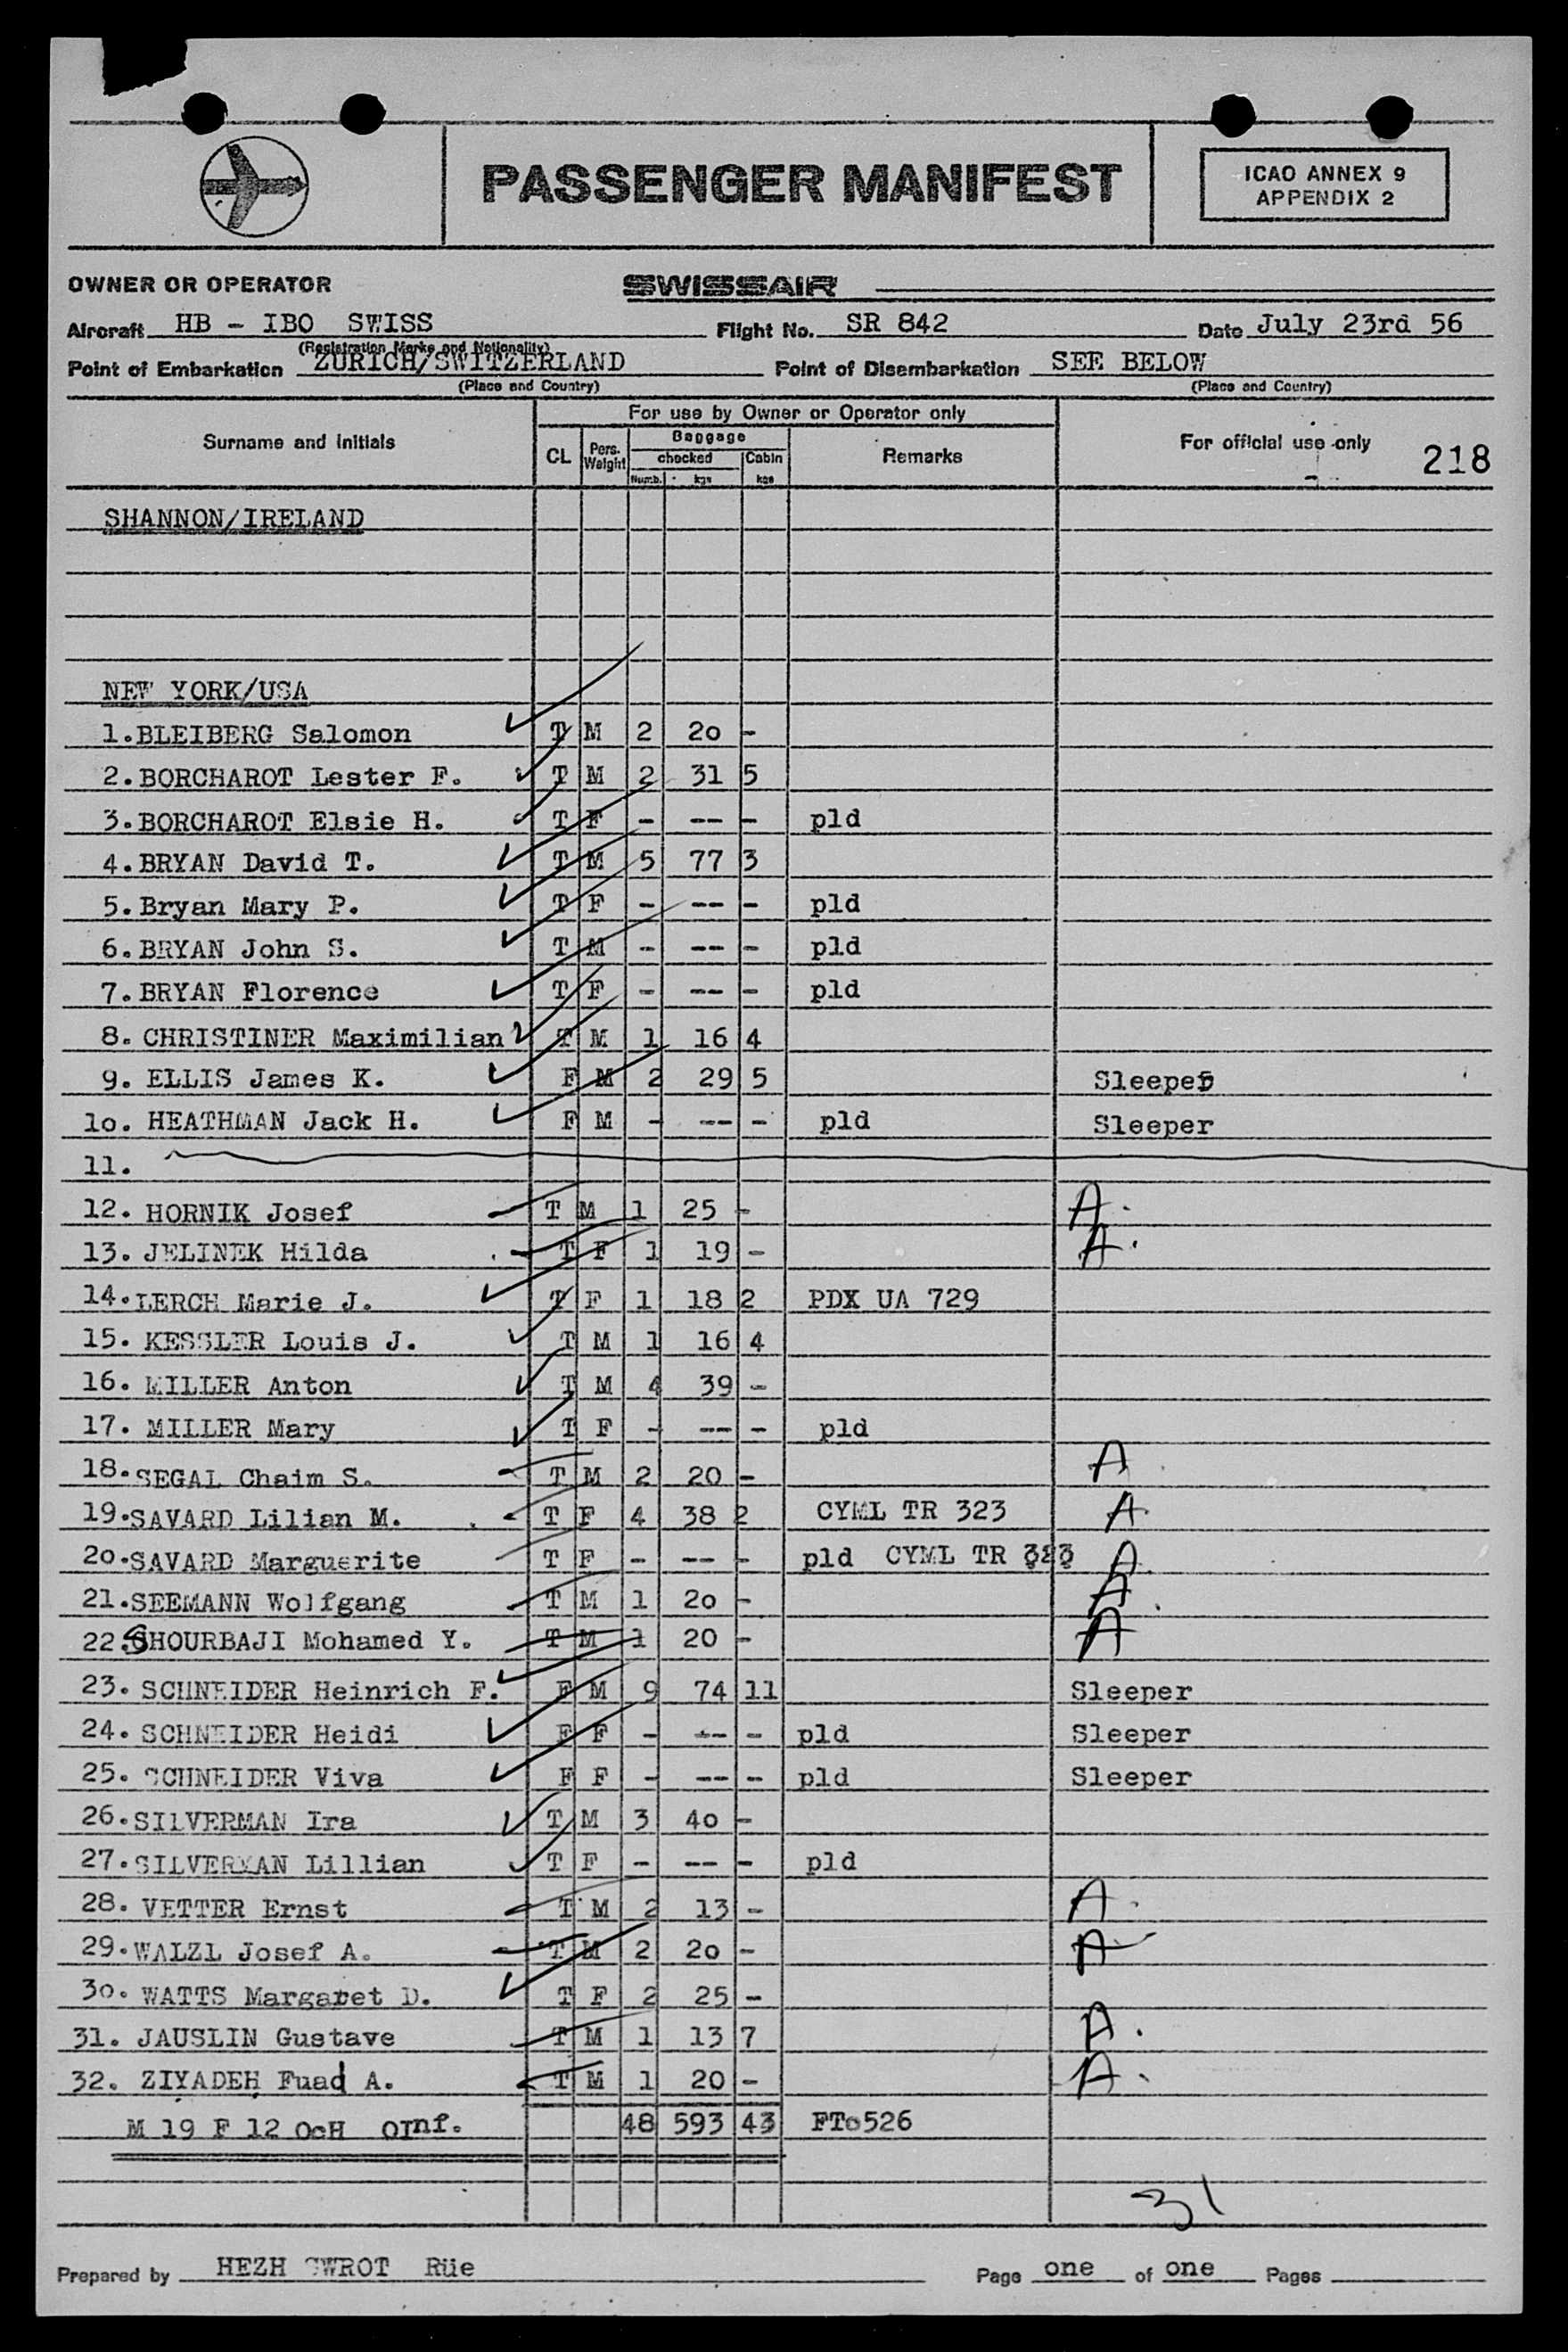 PASSENGER MANIFEST
ICAO ANNEX 9
APPENDIX 2
OWNER OR OPERATOR SWISSAIR
Aircraft HB - IBO SWISS Flight No. SR 842 Date July 23rd 56
(Registration Marks and Nationality)
Point of Embarkation ZURICH/SWITZERLAND Point of Disembarkation SEE BELOW
(Place and Country) (Place and Country)
For use by Owner or Operator only
Surname and Initials CL Pers. Weight Baggage checked Numb. kgs Cabin kgs Remarks For official use only 218
SHANNON/IRELAND
NEW YORK/USA
1.BLEIBERG Salomon T M 2 2o -
2.BORCHAROT Lester F. T M 2 31 5
3.BORCHAROT Elsie H. T F - -- - pld
4.BRYAN David T. T M 5 77 3
5.Bryan Mary P. T F - -- - pld
6.BRYAN John S. T M - -- - pld
7.BRYAN Florence T F - -- - pld
8. CHRISTINER Maximilian T M 1 16 4
9. ELLIS James K. F M 2 29 5 Sleeper
1o. HEATHMAN Jack H. F M - -- - pld Sleeper
11.
12. HORNIK Josef T M 1 25 - A.
13. JELINEK Hilda T F 1 19 - A.
14.LERCH Marie J. T F 1 18 2 PDX UA 729
15. KESSLER Louis J. T M 1 16 4
16. MILLER Anton T M 4 39 -
17. MILLER Mary T F - -- - pld
18.SEGAL Chaim S. T M 2 20 - A
19.SAVARD Lilian M. T F 4 38 2 CYML TR 323 A
2o.SAVARD Marguerite T F - -- - pld CYML TR 323 A
21.SEEMANN Wolfgang T M 1 2o - A
22.SHOURBAJI Mohamed Y. T M 1 20 - A
23. SCHNEIDER Heinrich F. F M 9 74 11 Sleeper
24. SCHNEIDER Heidi F F - -- - pld Sleeper
25. SCHNEIDER Viva F F - -- - pld Sleeper
26.SILVERMAN Ira T M 3 4o -
27.SILVERMAN Lillian T F - -- - pld
28. VETTER Ernst T M 2 13 - A.
29.WALZL Josef A. T M 2 2o - A
3o. WATTS Margaret D. T F 2 25 -
31. JAUSLIN Gustave T M 1 13 7 A.
32. ZIYADEH Fuad A. T M 1 20 - A.
M 19 F 12 OcH OInf. 48 593 43 FTo526
31
Prepared by HEZH SWROT Rüe Page one of one Pages